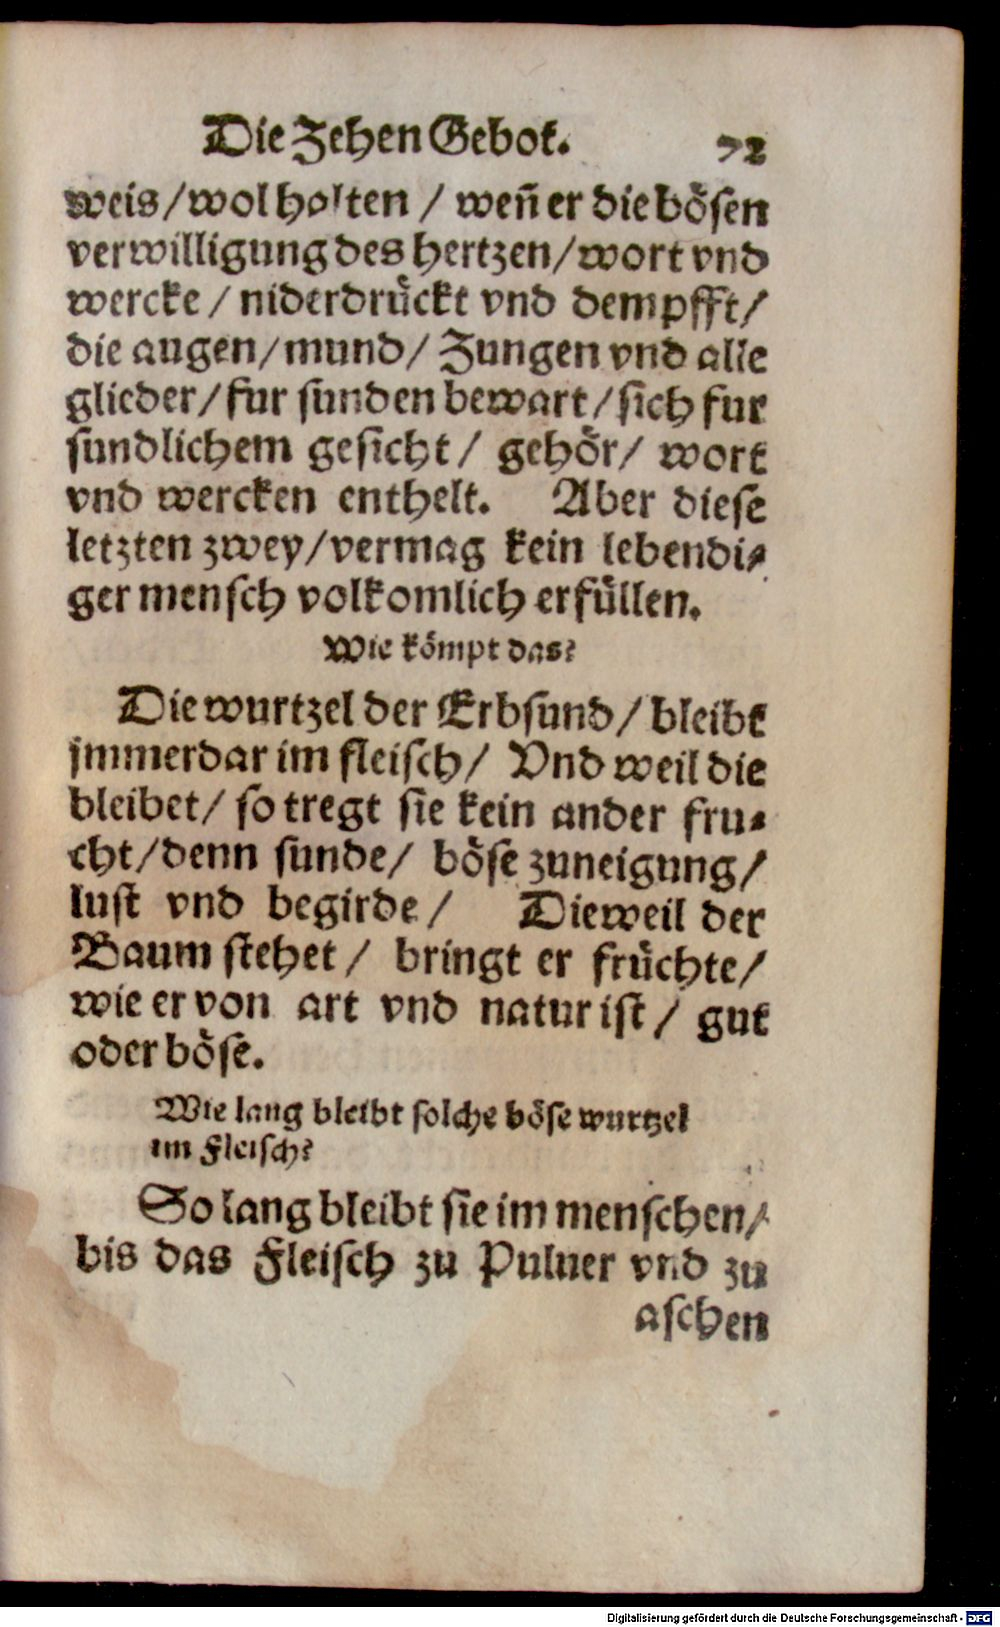 Die Zehen Gebot. 72
weis/wol holten / weñ er die bösen
verwilligung des hertzen/wort vnd
wercke / niderdrückt vnd dempfft/
die augen/mund/ Zungen vnd alle
glieder/fur sunden bewart/sich fur
sundlichem gesicht/ gehör/ wort
vnd wercken enthelt. Aber diese
letzten zwey/vermag kein lebendi-
ger mensch volkomlich erfüllen.
Wie kömpt das?
Die wurtzel der Erbsund/bleibt
jmmerdar im fleisch/ Vnd weil die
bleibet/ so tregt sie kein ander fru-
cht/denn sunde/ böse zuneigung/
lust vnd begirde/ Dieweil der
Baum stehet/ bringt er früchte/
wie er von art vnd natur ist/ gut
oder böse.
Wie lang bleibt solche böse wurtzel
im Fleisch?
So lang bleibt sie im menschen/
bis das Fleisch zu Puluer vnd zu
aschen
Digitalisierung gefördert durch die Deutsche Forschungsgemeinschaft - DFG